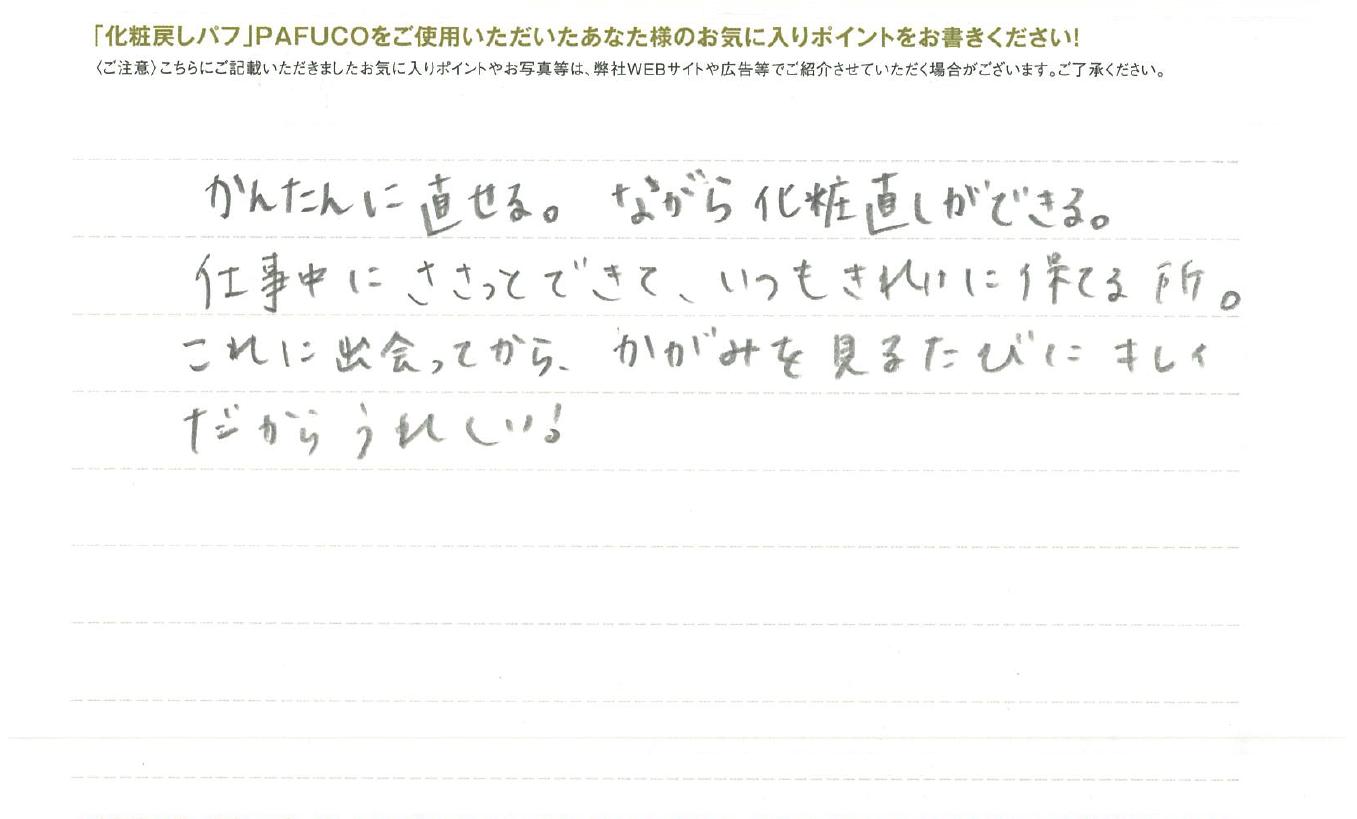 「化粧戻しパフ」PAFUCOをご使用いただいたあなた様のお気に入りポイントをお書きください!
〈ご注意〉こちらにご記載いただきましたお気に入りポイントやお写真等は、弊社WEBサイトや広告等でご紹介させていただく場合がございます。ご了承ください。
かんたんに直せる。 ながら化粧直しができる。
仕事中にささっとできて、いつもきれいに保てる所。
これに出会ってから、かがみを見るたびにキレイ
だからうれしい!